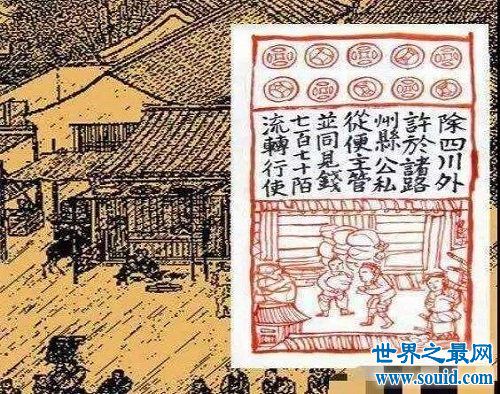 除四川外
許於諸路
州縣公私
從便主管
並同見錢
七百七十陌
流轉行使
世界之最网
www.souid.com